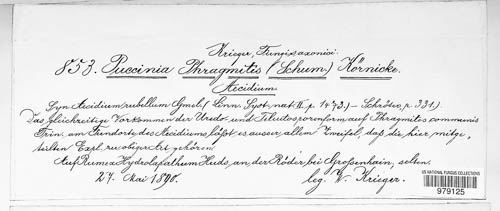 Krieger, Fungi saxonici.
853. Puccinia Phragmitis (Schum.) Körnicke.
Aecidium.
Syn. Aecidium rubellum Gmel. (Linn. Syst. nat. II. p. 1473.) – Schröter, p. 331.)
Das gleichzeitige Vorkommen der Uredo- und Teleutosporenform auf Phragmites communis
Trin. am Standorte des Aecidiums, läßt es ausser allen Zweifel, daß die hier mitge-
teilten Expl. zu obiger Art gehören.
Auf Rumex Hydrolapathum Huds. an der Röder bei Großenhain, selten.
27. Mai 1890. leg. W. Krieger.
US NATIONAL FUNGUS COLLECTIONS
979125